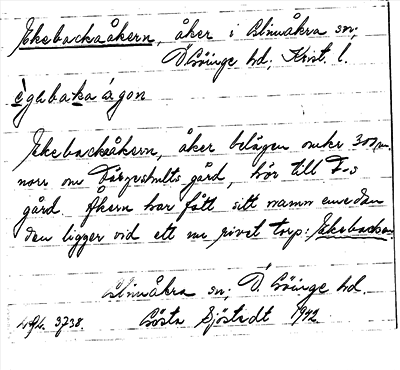 Ekebackaåkern, åker i Glimåkra sn;
Ö Göinge hd, Krist. l.
ègəbaka ågon
Ekebackaåkern, åker belägen omkr 300 m.
norr om Färgeshults gård, hör till F-s
gård. Åkern har fått sitt namn emedan
den ligger vid ett nu rivet torp: Ekebackan.
Glimåkra sn; Ö. Göinge hd.
3738. Gösta Sjöstedt 1942